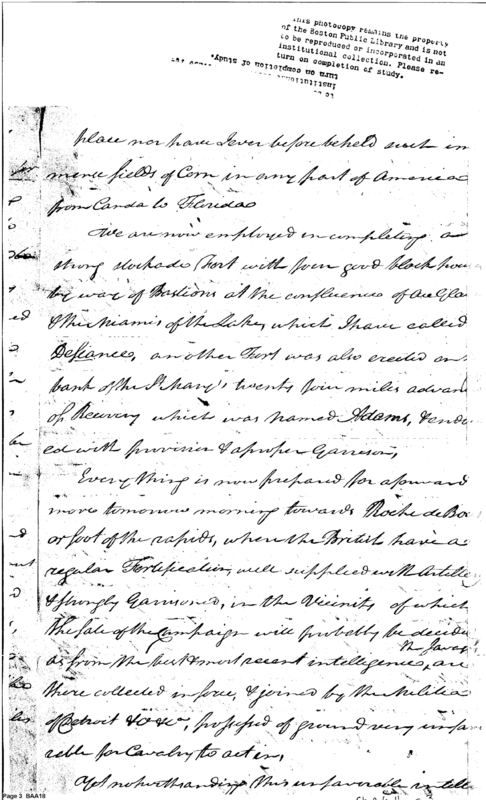 this photocopy remains the property
of the Boston Public Library and is not
to be reproduced or incorporated in an
institutional collection. Please re-
turn on completion of study.
turn on completion of study.
place nor have I ever before beheld such im
mense fields of Corn in any part of America
from Canda to Florida
We are now employed in completing a
strong stockade Fort with four good block hou
by way of Bastions at the confluence of Au Gla
& the Miamis of the Lake, which I have called
Defiance, an other Fort was also erected on
bank of the St Mary's twenty four miles advan
of Recovery which was named Adams, & endo
ed with provision & a proper Garrison,
Every thing is now prepared for a forward
move tomorrow morning towards Roche de Bo
or foot of the rapids, where the British have a
regular Fortification, well supplied with Artille
& strongly Garrisoned, in the Vicinity of which
the fate of the Campaign will probably be decide
as from the best & most recent intelligence, the Savag are
there collected in force, & joined by the Militia
of Detroit &c &c, possessed of ground very unfavo
rable for Cavalry to act in,
Yet notwithstanding this unfavorable intelle
Page 3 BAA18